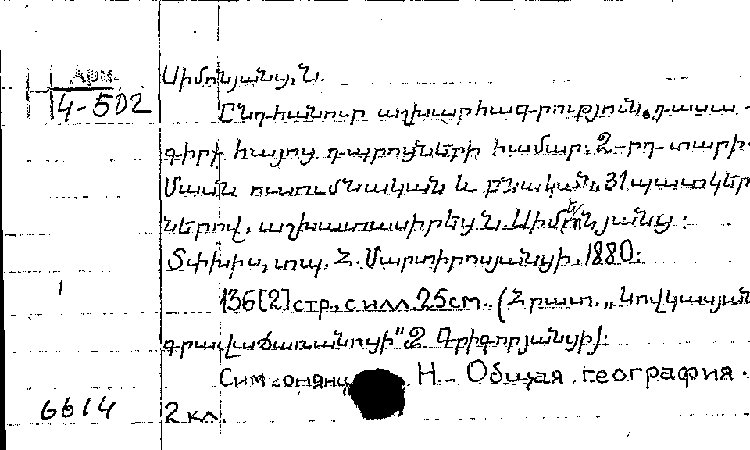 Арм.
4-502
Սիմոնյանց, Ն.
Ընդհանուր աշխարհագրություն, դասա-
գիրք հայոց դպրոցների համար. 2-րդ տարի.
Մասն ուսումնական և բնական, 31 պատկեր
ներով, աշխատասիրեց Ն. Սիմոնյանց.
Տփխիս, տպ. Հ. Մարտիրոսյանցի, 1880.
1
136[2] стр. с илл. 25см. (Հրատ. „Կովկասյան
գրավաճառանոցի" Զ. Գրիգորյանցի).
Симеонянц Н. Общая география.
6614
2 кл.